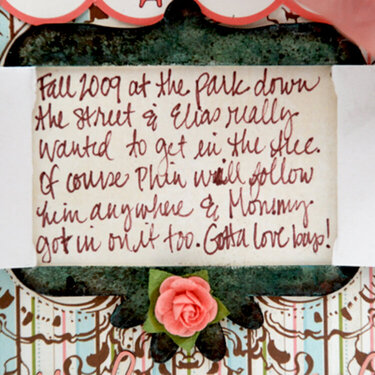 Fall 2009 at the park down
the street & Elias really
wanted to get in the tree.
Of course Phin will follow
him anywhere & Mommy
got in on it too. Gotta love boys!